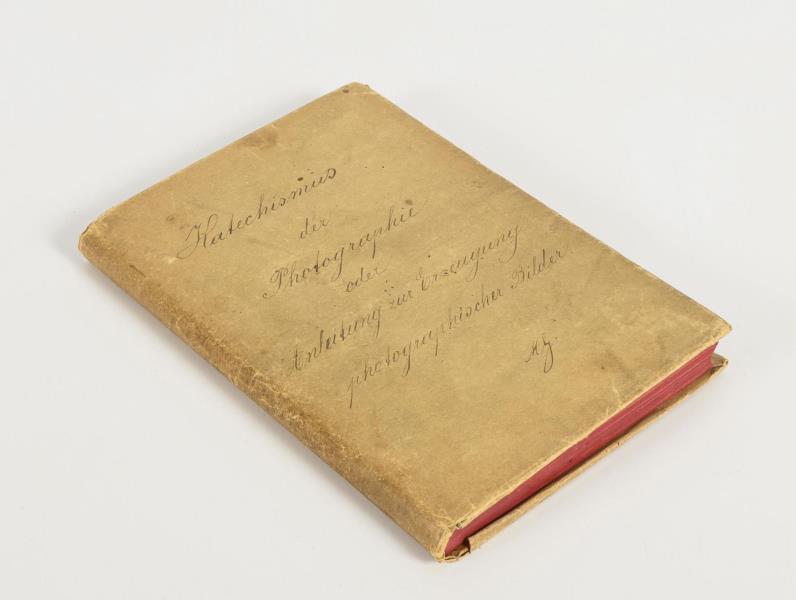 Katechismus
der
Photographie
oder
Anleitung zur Erzeugung
photographischer Bilder